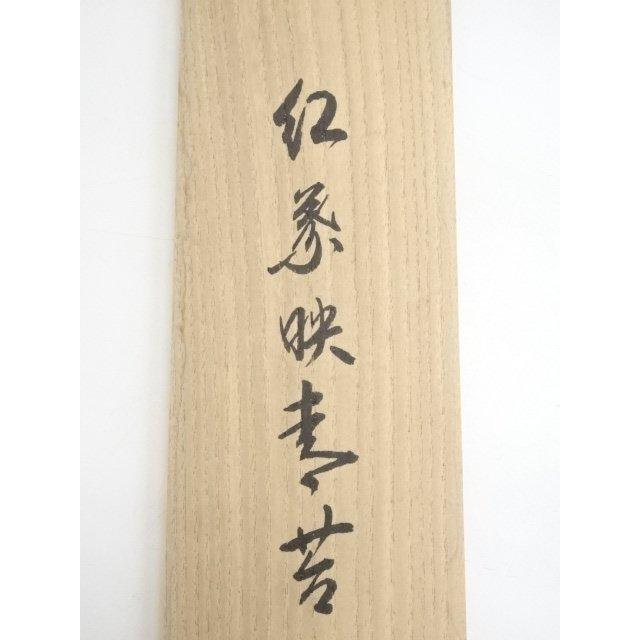 紅葉映青苔